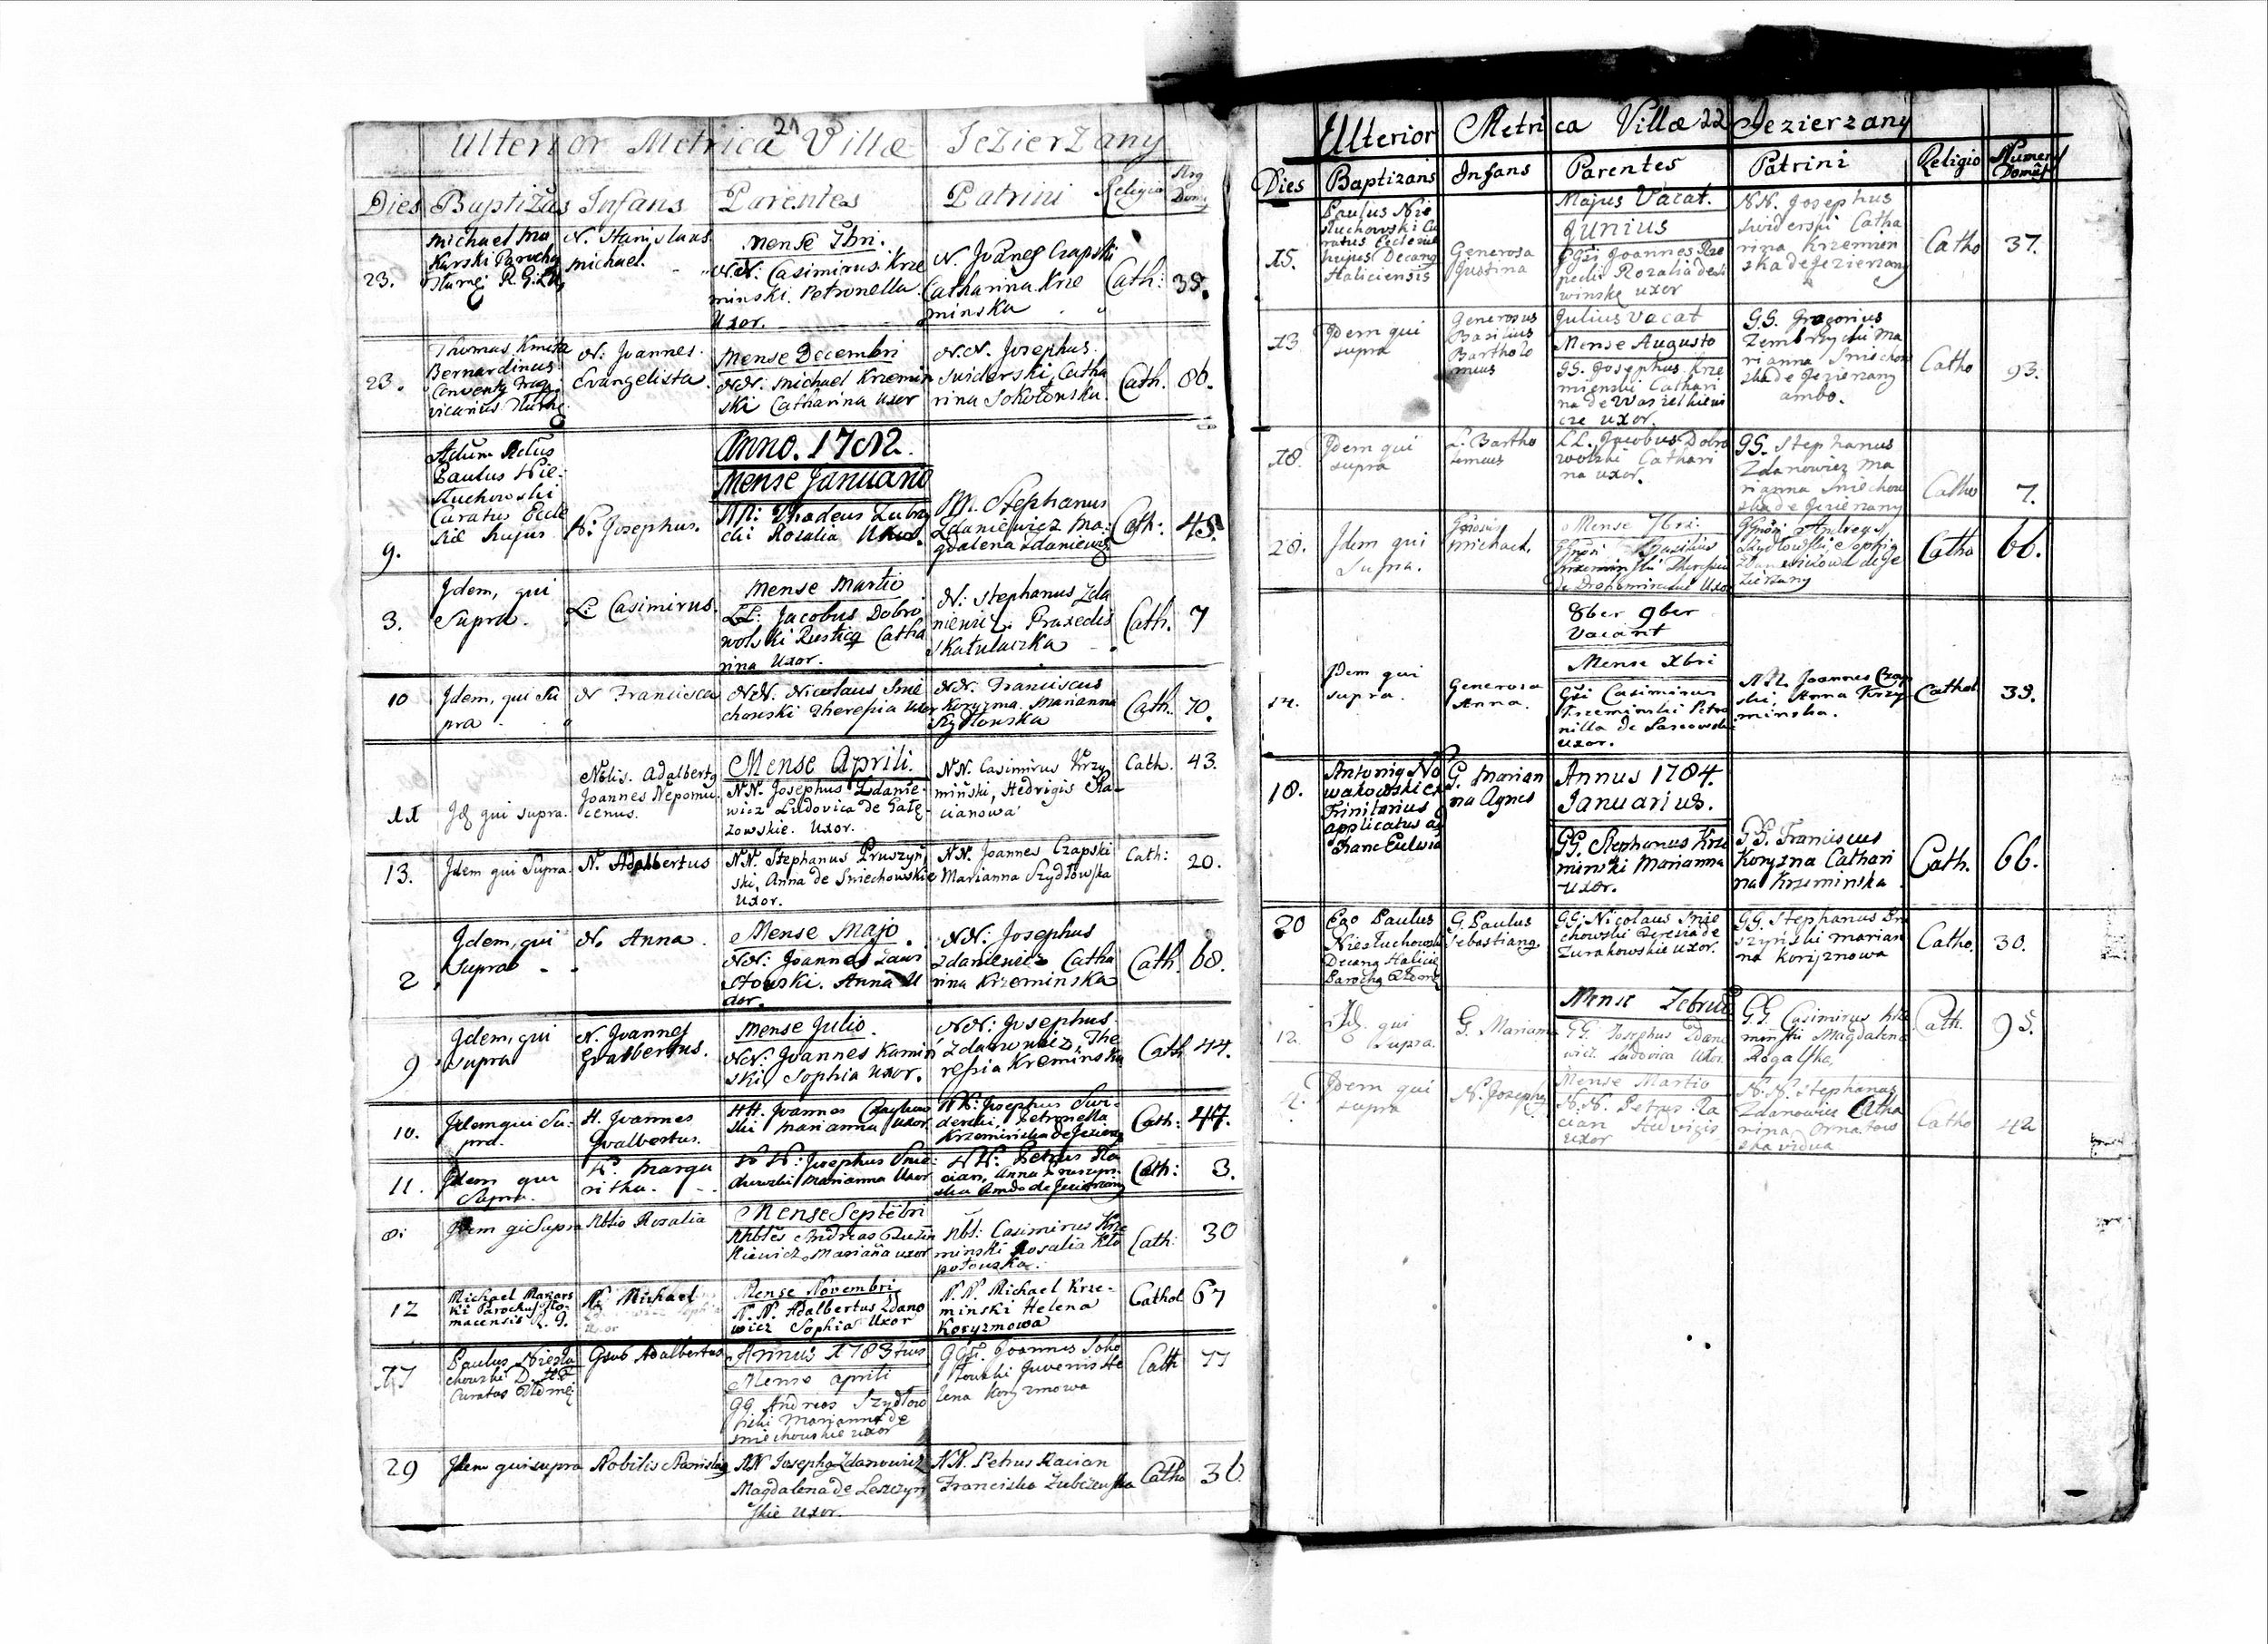 21
Ulterior Metrica Villæ Jezierzany
Dies Baptizās Infans Parentes Patrini Religio Nrg Domg
Mense 7bri.
23.
Michael Ma
karski Parochg
N. Stanislaus
Michael.
N.N: Casimirus Krze
minski. Petronella
Uxor.
N. Joāneſ Czapski
Catharina Krze
minska
Cath:
38.
23.
Thomas Kmita
Bernardinus
N: Joannes
Evangelista.
Mense Decembri
NN: Michael Krzemin
ski Catharina uxor
N.N. Josephus
Swiderski, Catha
rina Sokołonska.
Cath.
86.
Anno. 1782.
Mense Januario
9.
Paulus Nie-
słuchowski
Curatus Eccle
siæ hujus
N: Josephus.
NN: Thadeus Zubrzy
cki Rozalia Uxor.
Stephanus
Zdaniewicz Ma:
gdalena Zdaniewicz
Cath:
45.
3.
Jdem, qui
Supra.
L: Casimirus.
Mense Martio
LL: Jacobus Dobro
wolski Rusticg Catha
rina Uxor.
N: Stephanus Zda
niewicz. Praxedis
Skatulaczka
Cath.
7
10
Jdem, qui Su
pra
N Francisca
NN. Nicolaus Snie
chowski Theresia Uxor
NN. Franciscus
Koryzma. Marianna
Szydłowska
Cath.
70.
11
Jd. qui supra.
Nblis. Adalbertg
Joannes Nepomu.
cenus.
Mense Aprili.
NN. Josephus Zdanie-
wicz Ludovica de Gałę-
zowskie. Uxor.
NN. Casimirus Krzy
miński, Hedvigis Ra-
cianowa
Cath.
43.
13.
Jdem qui Supra.
N. Adalbertus
NN. Stephanus Pruszyń
ski, Anna de Sniechowskie
Uxor.
NN. Joannes Czapski
Marianna Szydłowska
Cath:
20.
2.
Jdem, qui
Supra
N. Anna.
Mense Majo.
NN: Joannes Zawi
stowski. Anna U
xor.
NN: Josephus
Zdaniewicz Catha
rina Krzeminska
Cath.
68.
9
Jdem, qui
Supra
N. Joannes
Gvalbertus.
Mense Julio.
NN: Joannes Kamin
ski Sophia uxor.
NN: Josephus
Zdanowicz, The
resia Kreminska
Cath
44.
10.
Jdem qui Su-
pra.
N. Joannes
Gvalbertus.
NN. Joannes
Marianna uxor.
NN: Josephus Swi-
derski, Petronella
Krzemińska de Jezierz
Cath:
47.
11.
Jdem qui
Supra.
N. Marga
ritha.
NN: Josephus Snie:
chowski Marianna Uxor
NN: Petrus Ra
cian, Anna Pruszyn-
ska Ambo de Jezierzany
Cath:
3.
8.
Jdem qi Supra
Nblis Rosalia
Mense Septēbri
Nbłes Andreas
Mariāna uxor
Nbł: Casimirus Krze
minski Rosalia Kło
potowska.
Cath:
30
12
Michael Makars
ki Parochus Tło-
macensis R. G.
N. Michael
Mense Novembri
N.N. Adalbertus Zdano
wicz Sophia Uxor
N.N. Michael Krze-
minski Helena
Koryzmowa
Cathol
67
17
Paulus Niesłu
chowski
Curatus
Gsus Adalbertus
Annus 1783tius
Mense aprili
GG Andreas Szydłow
ski Marianna de
Sniechowskie uxor
GGsi. Joannes Soko
łowski Juvenis He
lena Koryzmowa
Cath
77
29
Jdem qui supra
Nobilis Stanislag
NN Josephg Zdanowicz
Magdalena de Leszczyn
skie uxor.
NN. Petrus Racian
Franciska Zubczewska
Catho
36.
Ulterior Metrica Villæ 22 Jezierzany
Dies Baptizans Infans Parentes Patrini Religio Numerg Domūs
Majus Vacat.
Junius
15.
Paulus Nie
słuchowski Cu
ratus Ecclesiæ
hujus Decang
Haliciensis
Generosa
Justina
Gsi Joannes
Rozalia de
winskie uxor
N.N. Josephus
Swiderski Catha
rina Krzemien
ska de Jezierzany
Catho
37.
13
Jdem qui
supra
Generosus
Basilius
Bartholo
meus
Julius vacat
Mense Augusto
GG. Josephus Krze
mienski Cathari
na de Wasielkiewi
cze uxor.
G.G. Gregorius
Zembrzycki Ma
rianna Sniechow
ska de Jezierzany
ambo.
Catho
93.
18.
Jdem qui
supra
L. Bartho
lomeus
LL. Jacobus Dobro
wolski Cathari
na uxor.
GG. Stephanus
Zdanowicz Ma
rianna Sniechow
ska de Jezierzany
Catho
7.
28.
Jdem qui
Supra.
Michael,
Mense 7bri.
Gnosi Basilius
Krzeminski Theresia
Uxor
Andreas
Szydłowski, Sophia
Zdanewiczowa de Je
zierzany
Catho
66.
8ber 9ber
Vacant
Mense Xbri
14.
Jdem qui
supra.
Generosa
Anna.
Gsi Casimirus
Krzeminski Petro
nilla de
uxor.
NN. Joannes Czap
ski, Anna Krzy
minska.
Cathol.
38.
Annus 1784.
Januarius.
18.
Antonig No
wakowski ex
Trinitarius
applicatus ad
hanc Eclesia
G. Marian
na Agnes
GG. Stephanus Krze
minski Marianna
uxor.
GG. Franciscus
Koryzna Cathari
na Krzeminska
Cath.
66.
20
Ego Paulus
Niesłuchowski
Decang Halicie
Parochg
G. Paulus
Sebastiang.
GG. Nicolaus Snie
chowski Teresia de
Zurakowskie uxor.
GG. Stephanus Pru
szyński Marian
na Koryznowa
Catho.
30.
12.
Jd. qui
supra.
G. Mariana
Mense Febru
GG. Josephus Zdano
wicz. Ludovica Uxor.
G.G. Casimirus Krze
minski Magdalena
Rogalska,
Cath.
95.
4.
Jdem qui
supra
N. Josephg
Mense Martio
N.N. Petrus Ra
cian Hedvigis
uxor
N.N. Stephanus
Zdanowicz Catha
rina Ornatow
ska vidua
Catho
42